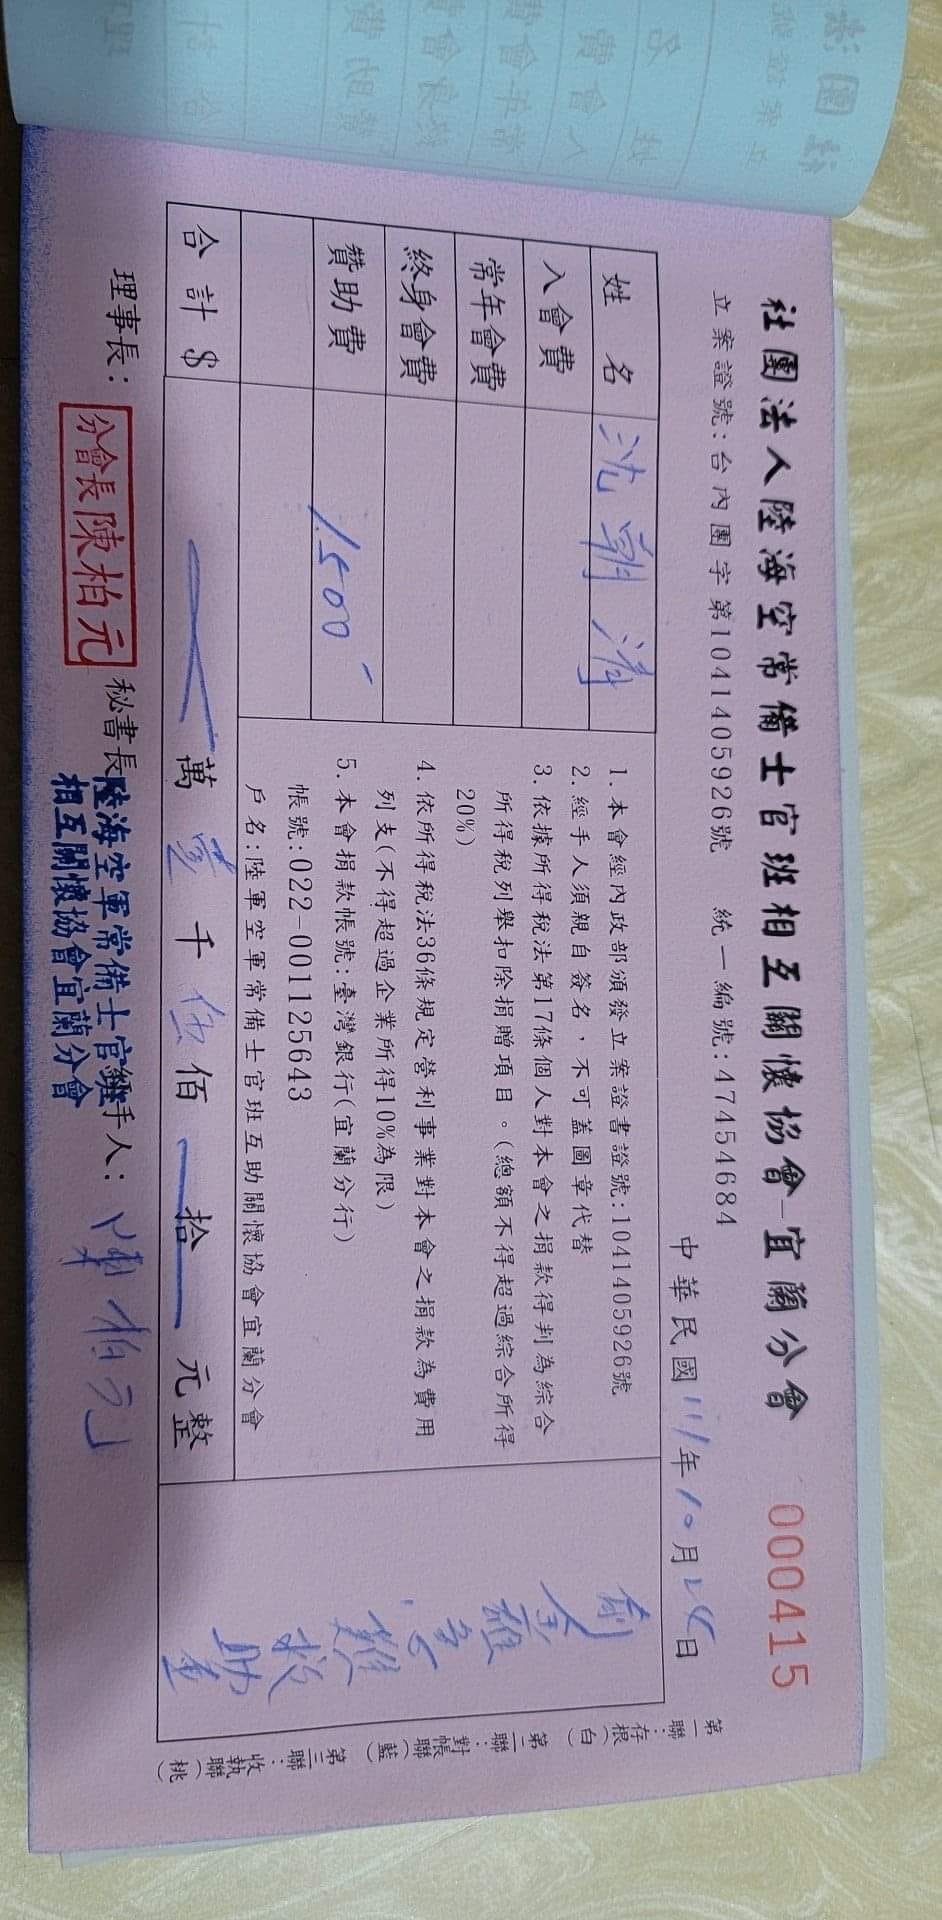 社團法人陸海空常備士官班相互關懷協會-宜蘭分會 000415
立案證號:台內團字第1041405926號 統一編號:47454684
中華民國111年10月28日
姓名 沈朝清
入會費
常年會費
終身會費
贊助費 1,500
1.本會經內政部頒發立案證書證號:1041405926號
2.經手人須親自簽名,不可蓋圖章代替
3.依據所得稅法第17條個人對本會之捐款得判為綜合
所得稅列舉扣除捐贈項目。(總額不得超過綜合所得
20%)
4.依所得稅法36條規定營利事業對本會之捐款為費用
列支(不得超過企業所得10%為限)
5.本會捐款帳號:臺灣銀行(宜蘭分行)
帳號:022-001125643
戶名:陸軍空軍常備士官班互助關懷協會宜蘭分會
合計$ 萬壹千伍佰拾元整
金雄
急難
救
助金
理事長: 分會長陳柏元 秘書長 陸海空軍常備士官班 經手人: 陳柏元
相互關懷協會宜蘭分會
第一聯:存根(白)
第二聯:對帳聯(藍)
第三聯:收執聯(桃)